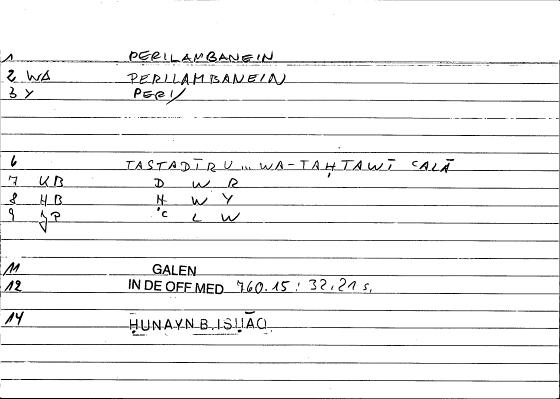 1 PERILAMBANEIN
2 WA PERILAMBANEIN
3 Y PERI/
6 TASTADĪRU ... WA-TAḤTAWĪ ᶜALĀ
7 KB D W R
8 HB Ḥ W Y
9 JP ᶜ L W
11 GALEN
12 IN DE OFF MED 760.15 ; 32,21 s,
14 ḤUNAYN B. ISḤĀQ